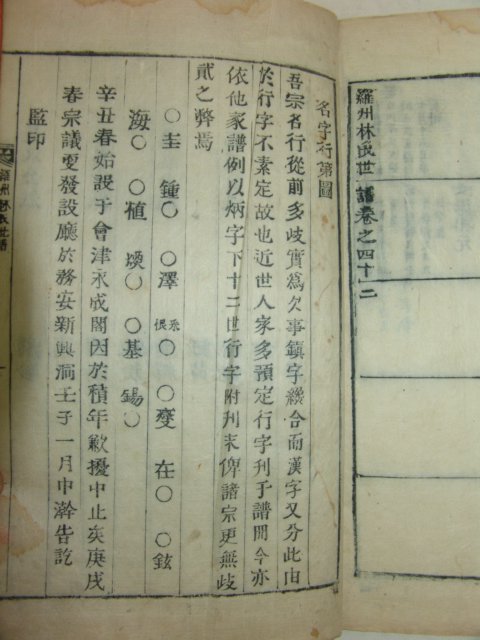 羅州林氏世譜卷之四十二
名字行第圖
吾宗名行從前多歧實爲欠事鎮字纔合而漢字又分此由
於行字不素定故也近世人家多預定行字刊于譜間今亦
依他家譜例以炳字下十二世行字附刋末俾諸宗更無歧
貳之弊焉
○圭 鍾○ ○澤 ○ ○燮 在○ ○鉉
海○ ○植 煐○ ○基 錫○
辛丑春始設于會津永成閣因於積年歉擾中止矣庚戌
春宗議更發設廳於務安新興洞壬子一月中澣告訖
監印
羅州林氏世譜